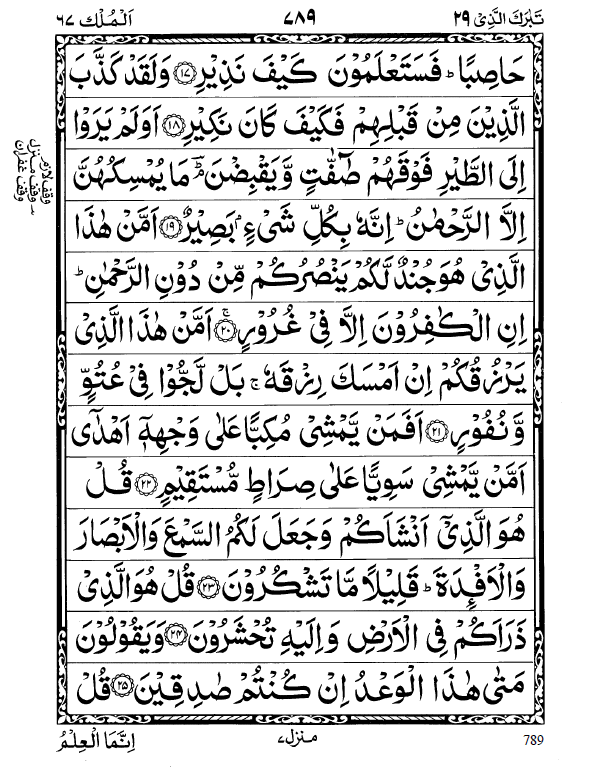 تَبٰرَكَ الَّذِیْ ۲۹
۷۸۹
اَلْمُلْك ۶۷
حَاصِبًا ؕ فَسَتَعْلَمُوْنَ كَیْفَ نَذِیْرِ ۝۱۷ وَلَقَدْ كَذَّبَ
الَّذِیْنَ مِنْ قَبْلِهِمْ فَكَیْفَ كَانَ نَكِیْرِ ۝۱۸ اَوَلَمْ یَرَوْا
اِلَی الطَّیْرِ فَوْقَهُمْ صٰٓفّٰتٍ وَّیَقْبِضْنَ ؔۘؕ مَا یُمْسِكُهُنَّ
اِلَّا الرَّحْمٰنُ ؕ اِنَّهٗ بِكُلِّ شَیْءٍۭ بَصِیْرٌ ۝۱۹ اَمَّنْ هٰذَا
الَّذِیْ هُوَ جُنْدٌ لَّكُمْ یَنْصُرُكُمْ مِّنْ دُوْنِ الرَّحْمٰنِ ؕ
اِنِ الْكٰفِرُوْنَ اِلَّا فِیْ غُرُوْرٍ ۝۲۰ۚ اَمَّنْ هٰذَا الَّذِیْ
یَرْزُقُكُمْ اِنْ اَمْسَكَ رِزْقَهٗ ۚ بَلْ لَّجُّوْا فِیْ عُتُوٍّ
وَّنُفُوْرٍ ۝۲۱ اَفَمَنْ یَّمْشِیْ مُكِبًّا عَلٰی وَجْهِهٖۤ اَهْدٰۤی
اَمَّنْ یَّمْشِیْ سَوِیًّا عَلٰی صِرَاطٍ مُّسْتَقِیْمٍ ۝۲۲ قُلْ
هُوَ الَّذِیْۤ اَنْشَاَكُمْ وَجَعَلَ لَكُمُ السَّمْعَ وَالْاَبْصَارَ
وَالْاَفْـِٕدَةَ ؕ قَلِیْلًا مَّا تَشْكُرُوْنَ ۝۲۳ قُلْ هُوَ الَّذِیْ
ذَرَاَكُمْ فِی الْاَرْضِ وَاِلَیْهِ تُحْشَرُوْنَ ۝۲۴ وَیَقُوْلُوْنَ
مَتٰی هٰذَا الْوَعْدُ اِنْ كُنْتُمْ صٰدِقِیْنَ ۝۲۵ قُلْ
وقف لازم
وقف منزل
وقف غفران
اِنَّمَا الْعِلْمُ
منزل۷
789